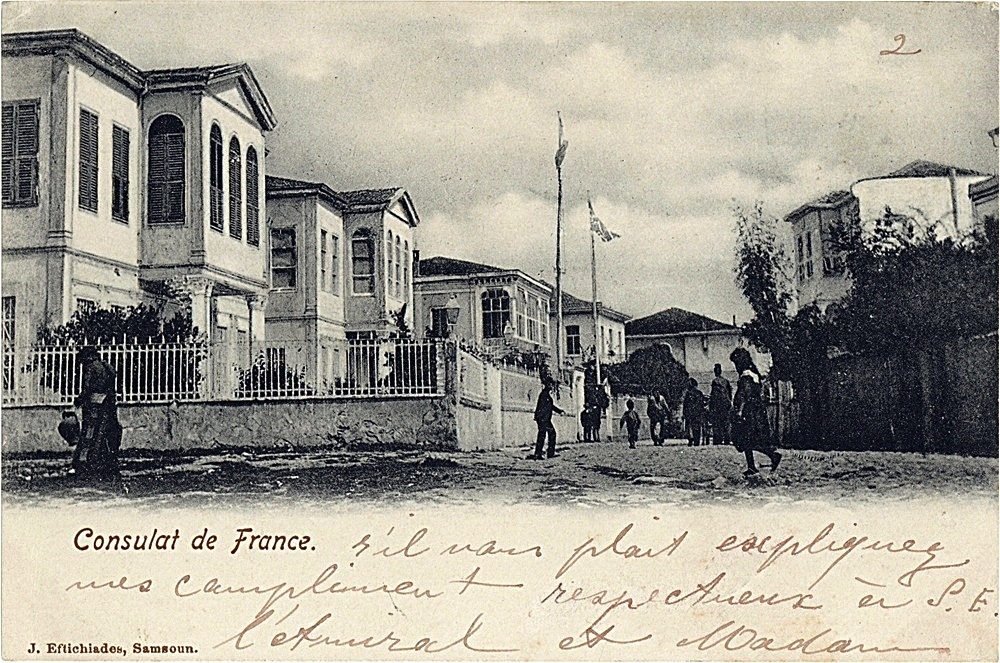 2
Consulat de France.
s'il vous plait expliquez
mes compliment respectueux à S.E.
l'Amiral et Madam
J. Eftichiades, Samsoun.